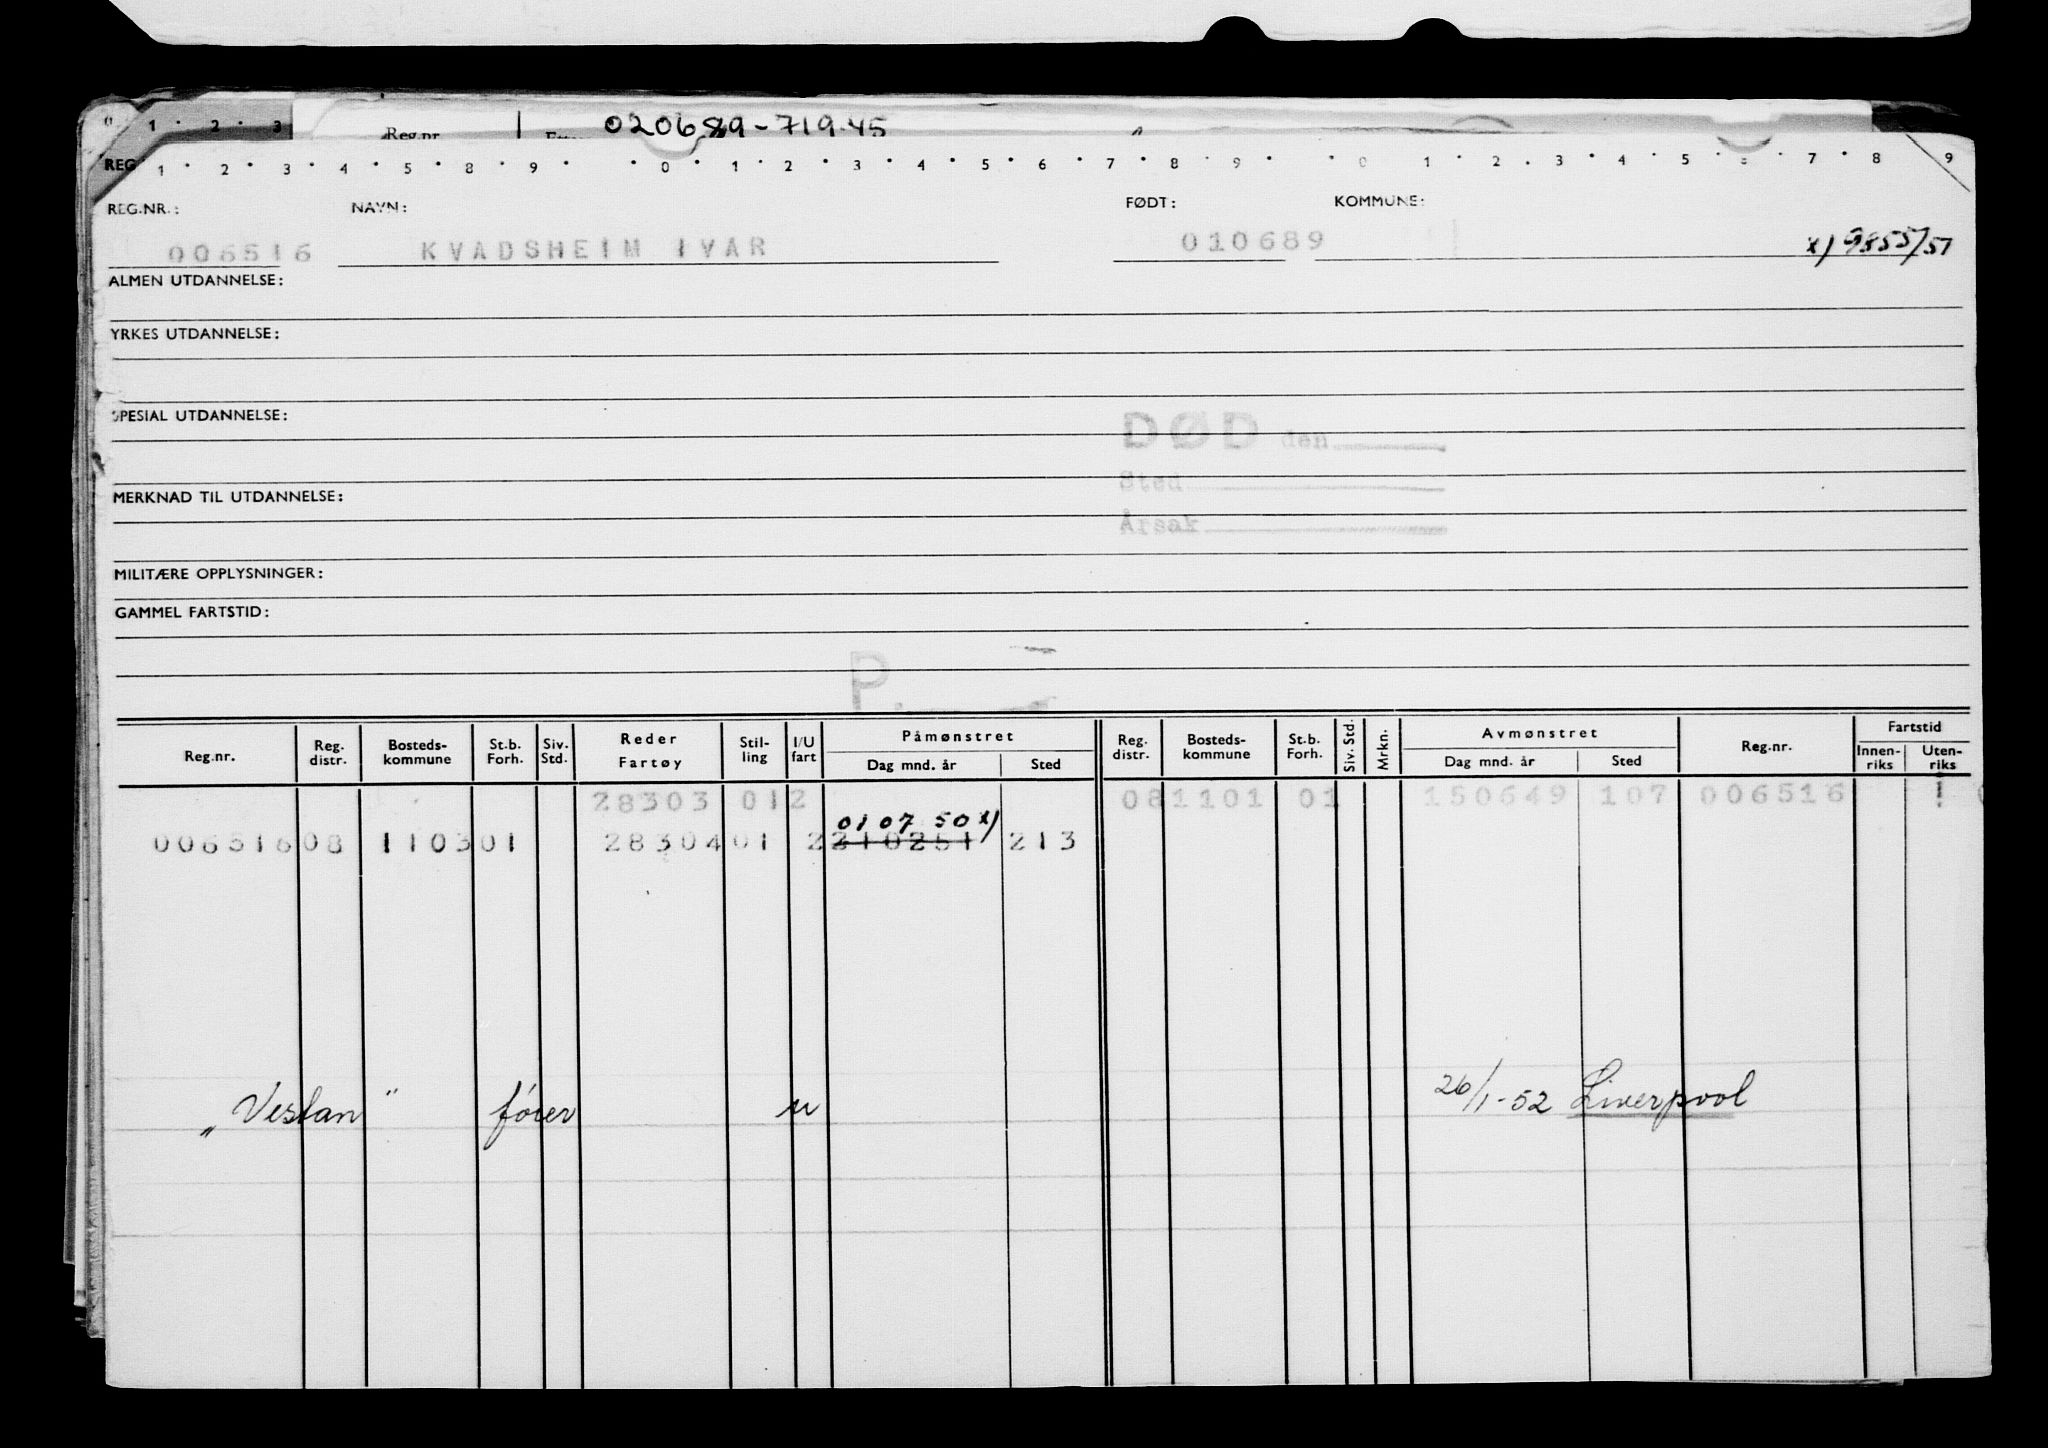 020689-719.45
Reg.nr
1 2 3
REG 1 2 3 4 5 8 9 0 1 2 3 4 5 6 7 8 9 0 1 2 3 4 5 6 7 8 9
REG.NR.: NAVN: FØDT: KOMMUNE:
006516 KVADSHEIM IVAR 010689 x) 9855/51
ALMEN UTDANNELSE:
YRKES UTDANNELSE:
SPESIAL UTDANNELSE:
DØD den
Sted
MERKNAD TIL UTDANNELSE:
Årsak
MILITÆRE OPPLYSNINGER:
GAMMEL FARTSTID:
P.
Reg.nr. Reg. distr. Bosteds-kommune St.b. Forh. Siv. Std. Reder Fartøy Stil-ling I/U fart Påmønstret Dag mnd. år Sted Reg. distr. Bosteds-kommune St.b. Forh. Siv. Std. Mrkn. Avmønstret Dag mnd. år Sted Reg.nr. Fartstid Innen-riks Uten-riks
28303 012 081101 01 150649 107 006516 1
01 07 50 x)
006516 08 1103 01 28304 01 2 210251 213
"Vestan" fører u 26/1-52 Liverpool